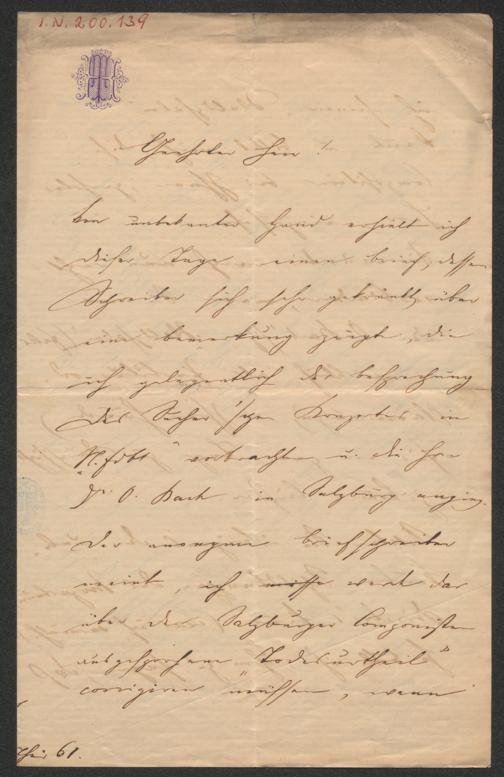 I.N. 200.139
Geehrter Herr!
Von unbekannter Hand erhielt ich
dieser Tage einen Brief, dessen
Schreiber sich sehr gekränkt über
eine Bemerkung zeigt, die
ich gelegentlich der Besprechung
des Sucher'schen Konzertes in
"N. fdbl" vorbrachte u. die Hrn
Dr. O. Bach in Salzburg anging.
Der anonyme Briefschreiber
meint, ich werde das
über den Salzburger Componisten
ausgesprochene "Todesurtheil"
corrigiren müssen, wenn
61.